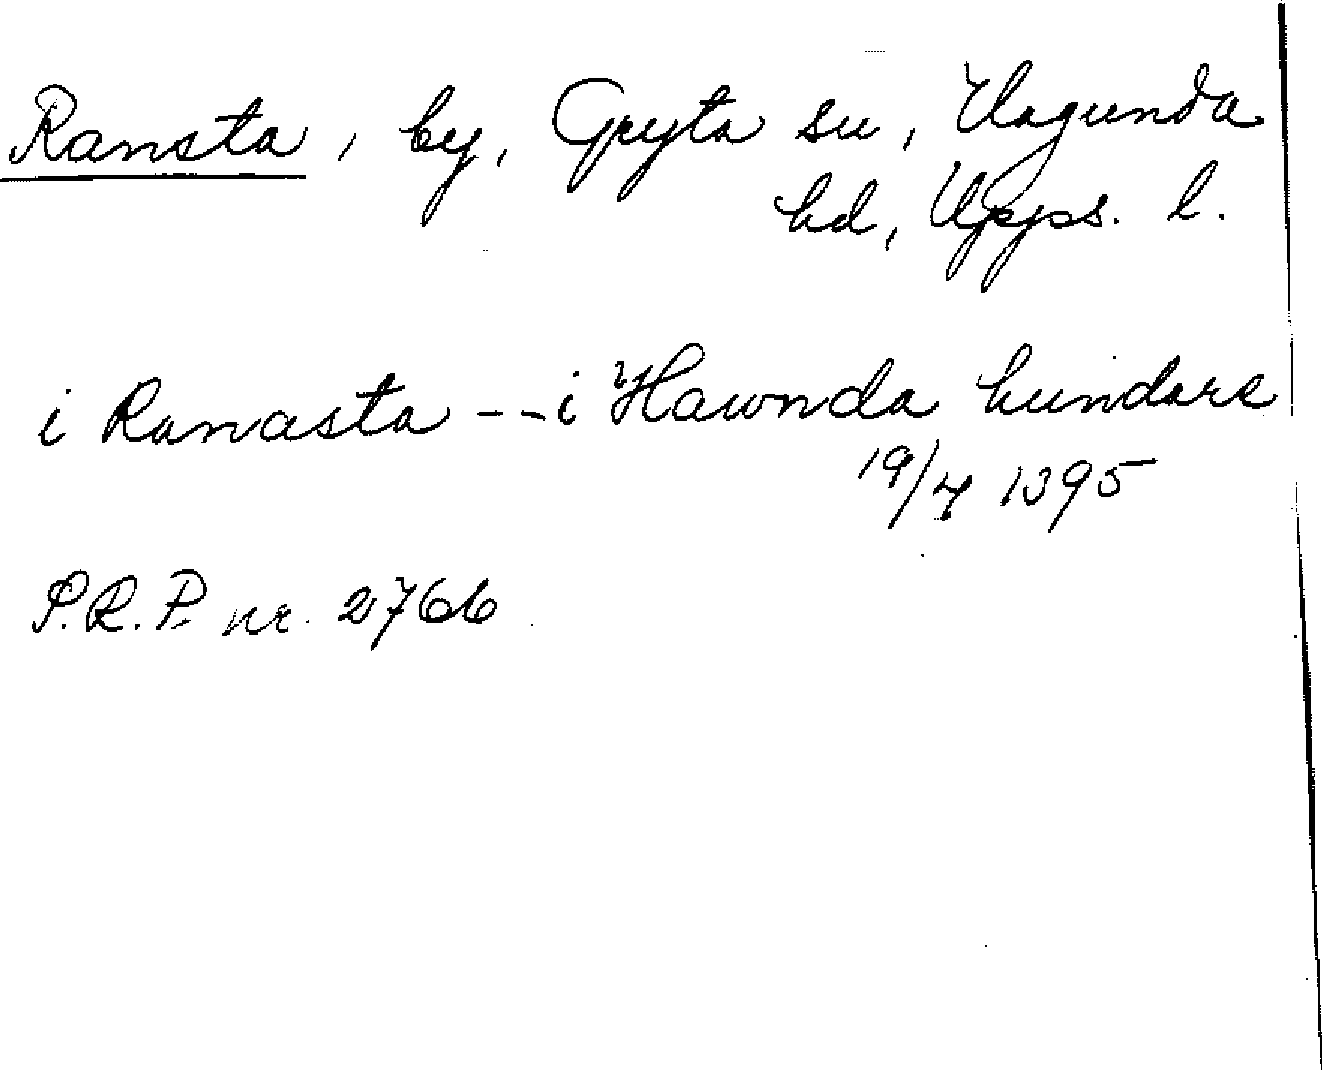 Ransta, by, Gryta sn, Hagunda
hd, Upps. l.
i Ranasta -- i Hawnda hundare
19/4 1395
S.R.P. nr. 2766